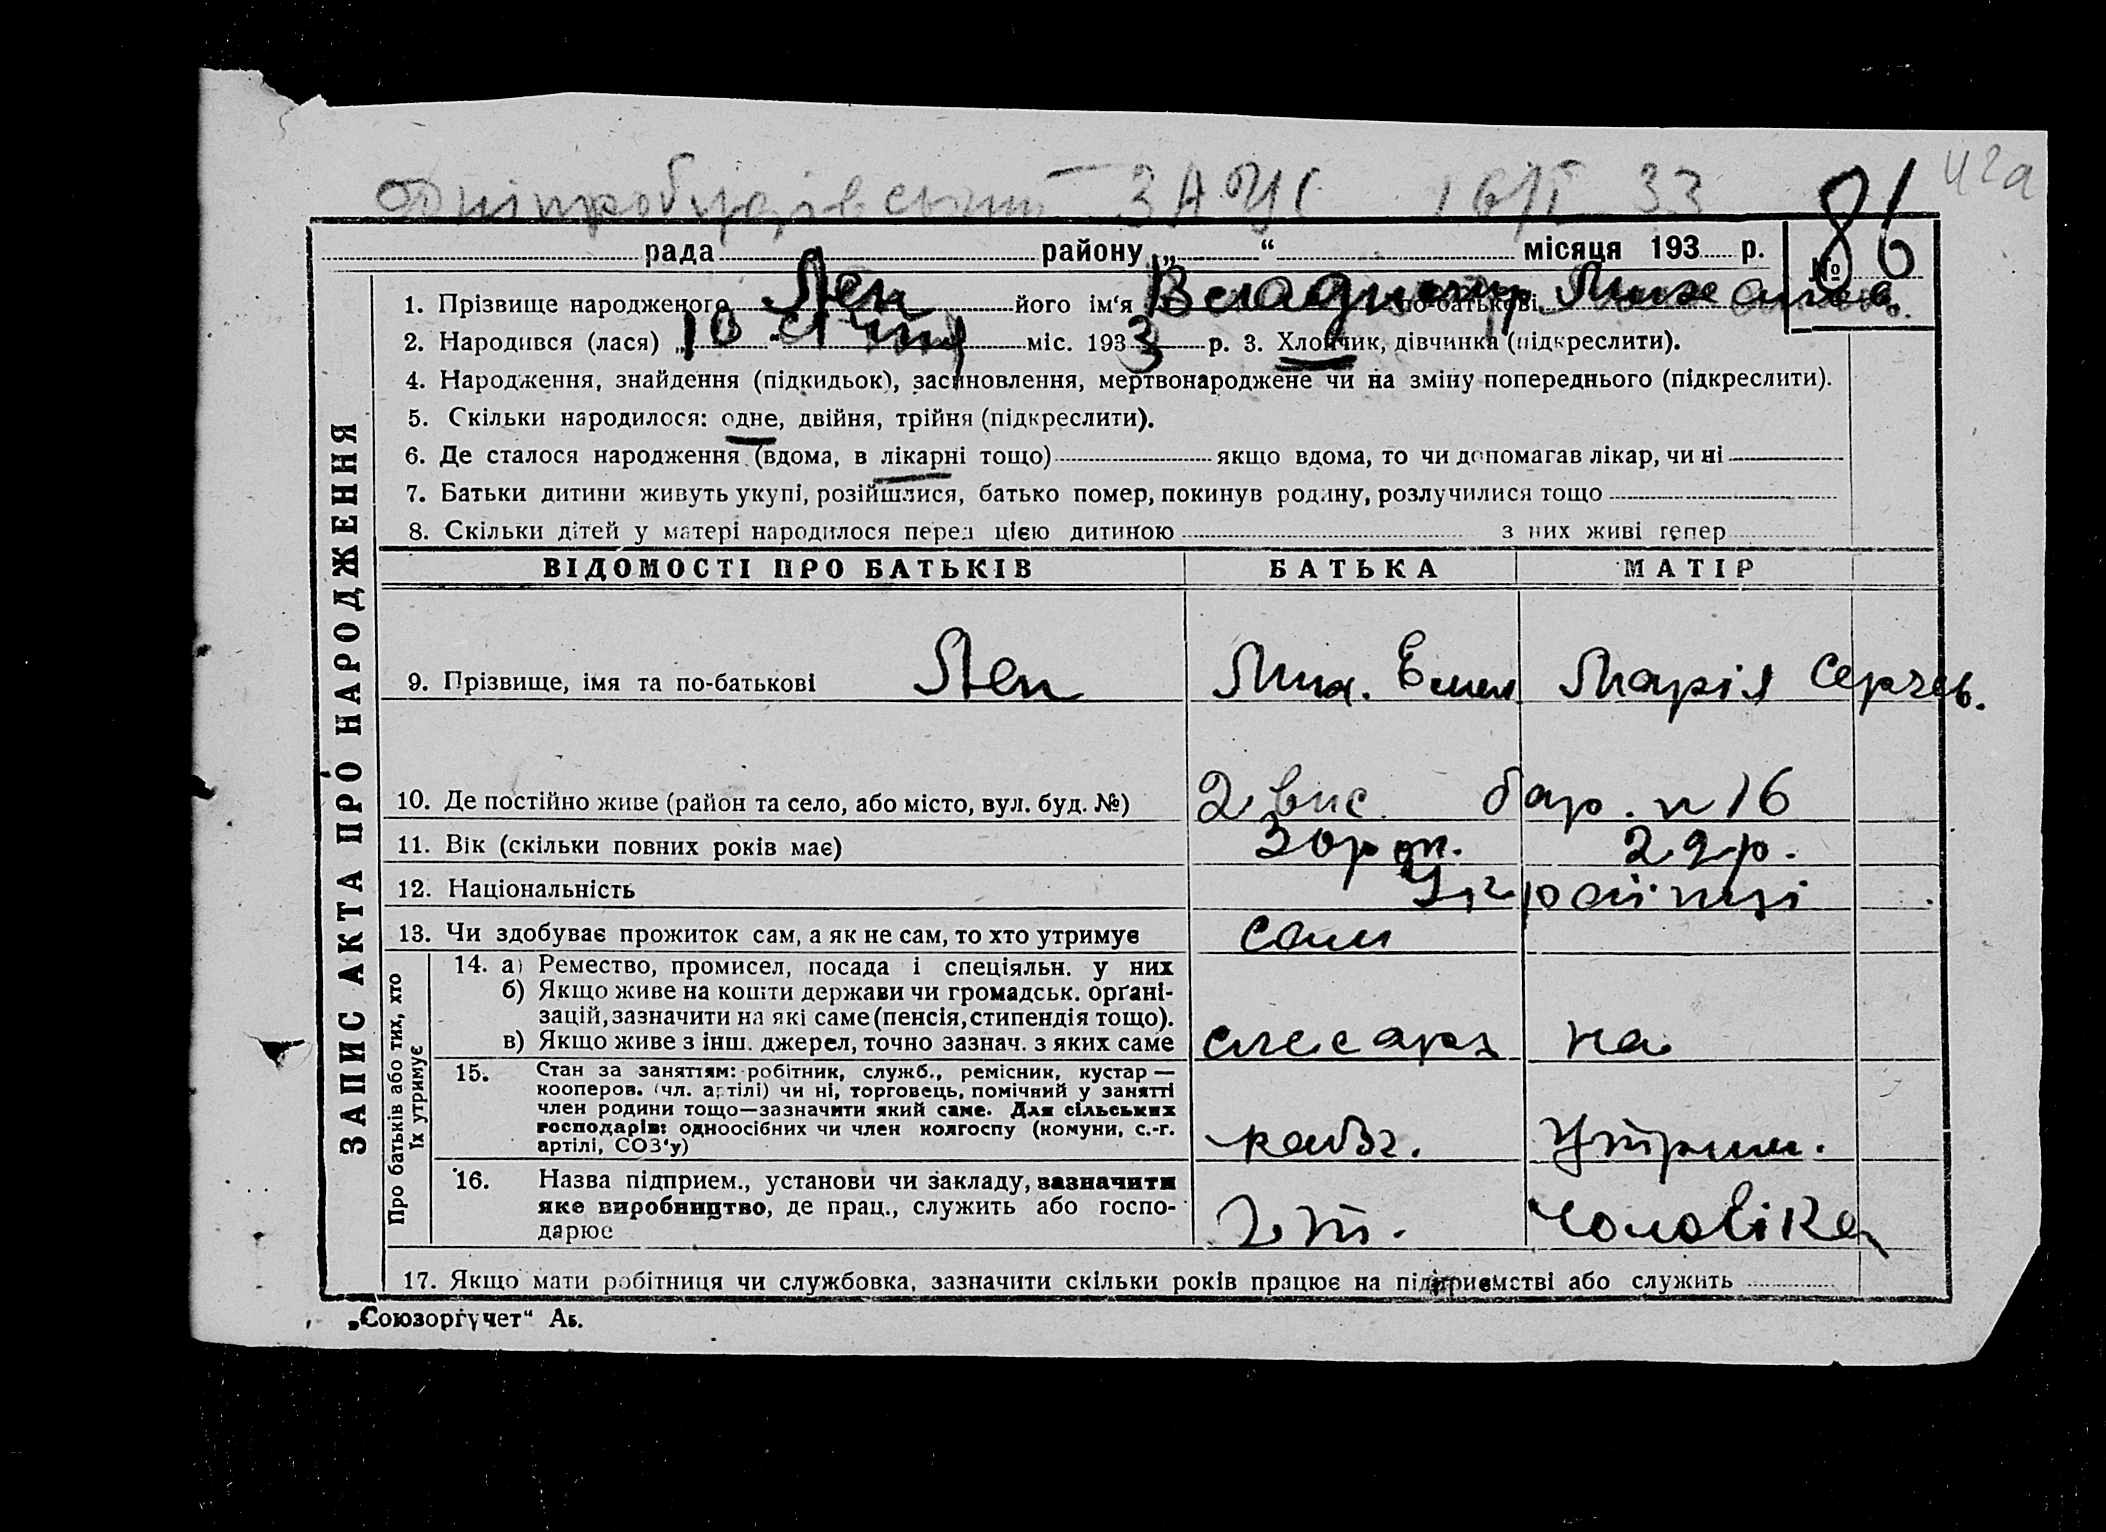 Дніпробудівський ЗАГС 16/І 33 42а
рада району „ “ місяця 193 р. № 86
1. Прізвище народженого Леп його ім‘я Владимир по-батькові Михайлов.
2. Народився (лася) „10 січня міс. 1933 р. 3. Хлопчик, дівчинка (підкреслити).
4. Народження, знайдення (підкидьок), засиновлення, мертвонароджене чи на зміну попереднього (підкреслити).
5. Скільки народилося: одне, двійня, трійня (підкреслити).
6. Де сталося народження (вдома, в лікарні тощо) якщо вдома, то чи допомагав лікар, чи ні
7. Батьки дитини живуть укупі, розійшлися, батько помер, покинув родину, розлучилися тощо
8. Скільки дітей у матері народилося перед цією дитиною з них живі тепер
ЗАПИС АКТА ПРО НАРОДЖЕННЯ
ВІДОМОСТІ ПРО БАТЬКІВ БАТЬКА МАТІР
9. Прізвище, імя та по-батькові Леп Мих. Емел Марія Сергев.
10. Де постійно живе (район та село, або місто, вул. буд. №) 2 вис. бар. n 16
11. Вік (скільки повних років має) 30 р. 29 р.
12. Національність Українці
13. Чи здобуває прожиток сам, а як не сам, то хто утримує сам
Про батьків або тих, хто їх утримує
14. а) Ремество, промисел, посада і спеціяльн. у них
б) Якщо живе на кошти держави чи громадськ. орґані-
зацій, зазначити на які саме (пенсія, стипендія тощо).
в) Якщо живе з інш. джерел, точно зазнач. з яких саме слесарь на
15. Стан за заняттям: робітник, служб., ремісник, кустар —
кооперов. (чл. артілі) чи ні, торговець, помічний у занятті
член родини тощо—зазначити який саме. Для сільських
господарів: одноосібних чи член колгоспу (комуни, с.-г.
артілі, СОЗ‘у) утрим.
16. Назва підприєм., установи чи закладу, зазначити
яке виробництво, де прац., служить або госпо-
дарює чоловіка
17. Якщо мати робітниця чи службовка, зазначити скільки років працює на підприємстві або служить
„Союзоргучет“ Аб.